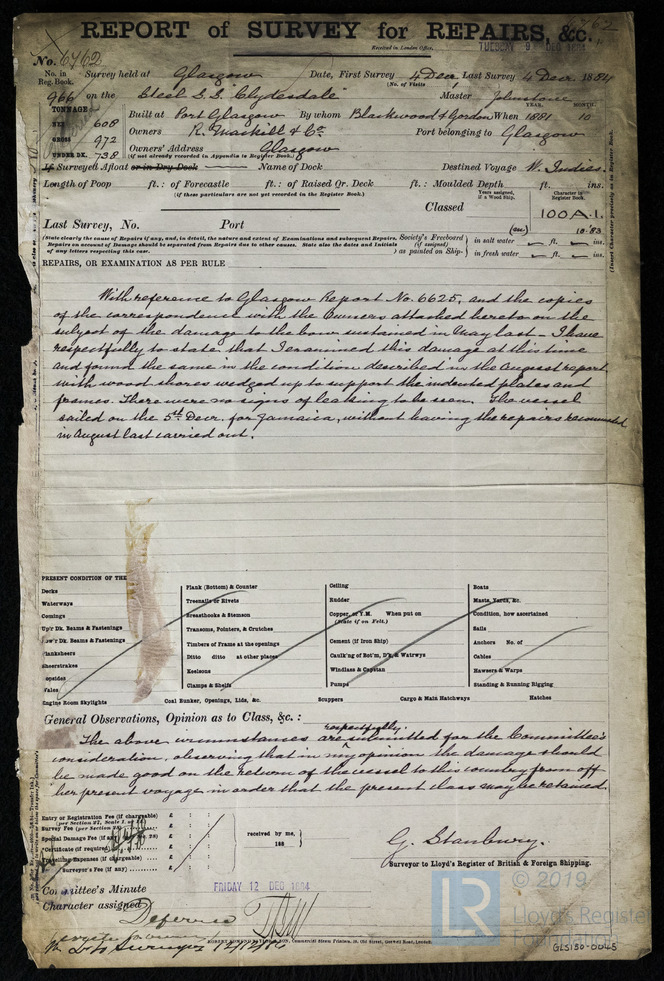 REPORT of SURVEY for REPAIRS, &c.
6762
Received in London Office,
TUESDAY 9 DEC 1884
No. 6762
No. in Reg. Book. Survey held at Glasgow Date, First Survey 4 Decr, Last Survey 4 Decr. 1884
(No. of Visits
966 on the Steel S.S. Clydesdale Master Johnstone
TONNAGE YEAR. MONTH.
NET 608 Built at Port Glasgow By whom Blackwood & Gordon When 1881 10
GROSS 972 Owners R. Mackill & Co. Port belonging to Glasgow
UNDER DK. 738 Owners' Address Glasgow
(if not already recorded in Appendix to Register Book.)
If Surveyed Afloat or in Dry Dock Name of Dock Destined Voyage W. Indies.
Length of Poop ft.: of Forecastle ft.: of Raised Qr. Deck ft.: Moulded Depth ft. ins.
(if these particulars are not yet recorded in the Register Book.)
Years assigned, if a Wood Ship. Character in Register Book.
Classed 100 A.1.
10.83
Last Survey, No. Port
(State clearly the cause of Repairs if any, and, in detail, the nature and extent of Examinations and subsequent Repairs. Society's Freeboard in salt water ft. ins.
Repairs on account of Damage should be separated from Repairs due to other causes. State also the dates and Initials (if assigned)
of any letters respecting this case.) as painted on Ship- in fresh water ft. ins.
REPAIRS, OR EXAMINATION AS PER RULE
With reference to Glasgow Report No. 6625, and the copies
of the correspondence with the Owners attached hereto on the
subject of the damage to the bow sustained in May last – I have
respectfully to state that I examined this damage at this time
and found the same in the condition described in the August report
with wood shores wedged up to support the indented plates and
frames. There were no signs of leaking to be seen. The vessel
sailed on the 5th Decr. for Jamaica, without having the repairs recommended
in August last carried out.
PRESENT CONDITION OF THE
Decks
Waterways
Comings
Up'r Dk. Beams & Fastenings
Low'r Dk. Beams & Fastenings
Planksheers
Sheerstrakes
Topsides
Wales
Engine Room Skylights
Plank (Bottom) & Counter
Treenails or Rivets
Breasthooks & Stemson
Transoms, Pointers, & Crutches
Timbers of Frame at the openings
Ditto ditto at other places
Keelsons
Clamps & Shelfs
Coal Bunker, Openings, Lids, &c.
Ceiling
Rudder
Copper or Y.M. When put on
(State if on Felt.)
Cement (if Iron Ship)
Caulk'ng of Bot'm, D'k, & Watrwys
Windlass & Capstan
Pumps
Scuppers
Cargo & Main Hatchways
Boats
Masts, Yards, &c.
Condition, how ascertained
Sails
Anchors No. of
Cables
Hawsers & Warps
Standing & Running Rigging
Hatches
General Observations, Opinion as to Class, &c. :
The above circumstances are respectfully submitted for the Committee's
consideration, observing that in my opinion the damage should
be made good on the return of the vessel to this country from off
her present voyage in order that the present class may be retained.
Entry or Registration Fee (if chargeable) £ : :
(per Section 27, Scale I.
Survey Fee (per Section £ : :
Special Damage Fee (if any 28) £ : :
*Certificate (if required) £ : :
Travelling Expenses (if chargeable) £ : :
Surveyor's Fee (if any) £ : :
received by me,
188
G. Stanbury.
Surveyor to Lloyd's Register of British & Foreign Shipping.
Committee's Minute FRIDAY 12 DEC 1884
Character assigned Deferred
© 2019
LR
Lloyd's Register
Foundation
GLS150-0045